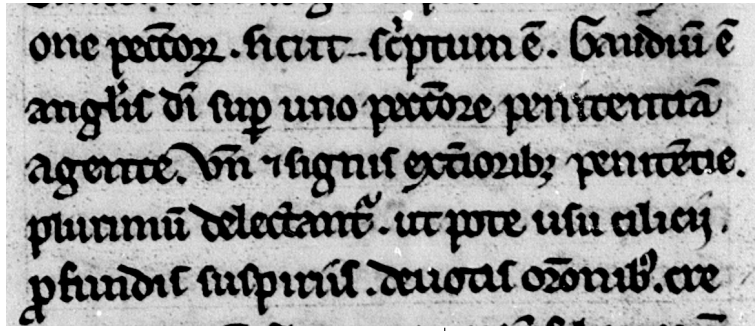 one peccōꝝ. sicut sc̓ptum ē. Gaudiū ē
angl̓is dī suꝑ uno peccōre penitentiā
agente. vn̄ ⁊ signis ext̄ioribꝫ penitētie.
plurimū delectant᷑. ut pote usu cilicij.
ꝓfundis suspiriis. deuotis or̄onibꝰ. cre